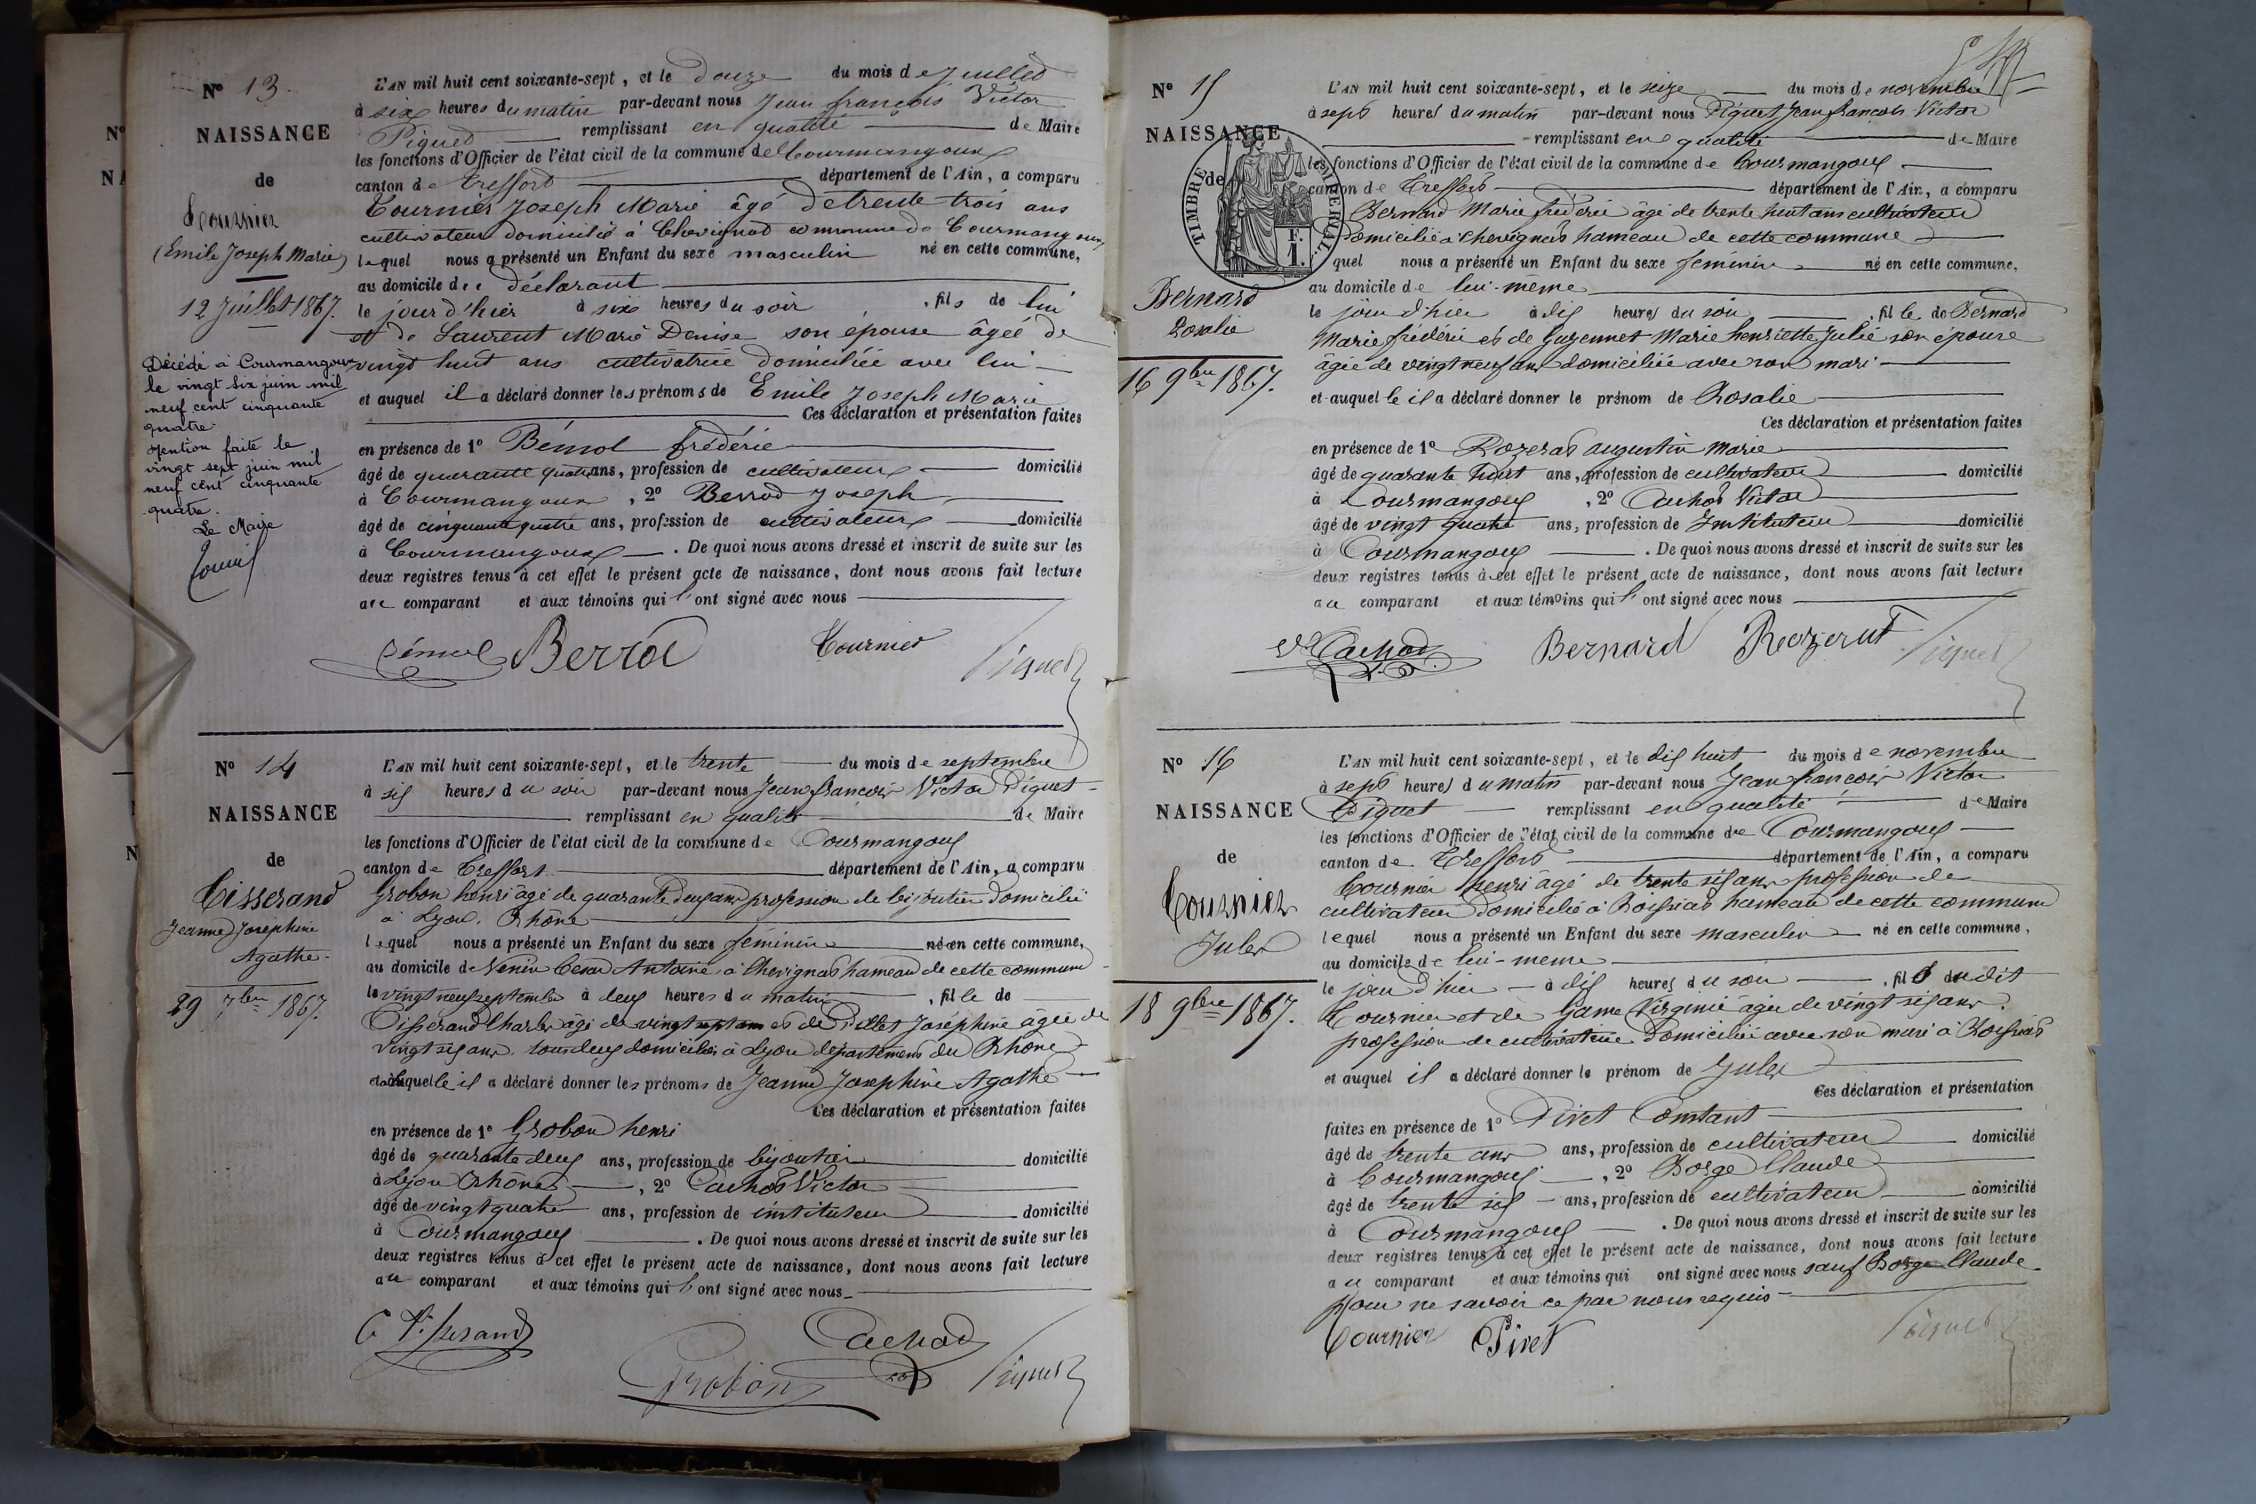 N° 13
NAISSANCE
de
Tournier
(Emile Joseph Marie)
12 Juillet 1867.
Décédé à Courmangoux
le vingt six juin mil
neuf cent cinquante
quatre.
Mention faite le
vingt sept juin mil
neuf cent cinquante
quatre.
Le Maire
L'AN mil huit cent soixante-sept, et le douze du mois de Juillet
à six heures du matin par-devant nous Jean françois Victor
Piquet remplissant en qualité de Maire
les fonctions d'Officier de l'état civil de la commune de Courmangoux
canton de Treffort département de l'Ain, a comparu
Tournier Joseph Marie âgé de trente trois ans
cultivateur domicilié à Chevignat commune de Courmangoux
lequel nous a présenté un Enfant du sexe masculin né en cette commune,
au domicile du déclarant
le jour d'hier à six heures du soir, fils de lui
et de Laurent Marie Denise son épouse âgée de
vingt huit ans cultivatrice domiciliée avec lui
et auquel il a déclaré donner les prénoms de Emile Joseph Marie
Ces déclaration et présentation faites
en présence de 1° Bémol frédéric
âgé de quarante quatre ans, profession de cultivateur domicilié
à Courmangoux, 2° Berrod Joseph
âgé de cinquante quatre ans, profession de cultivateur domicilié
à Courmangoux. De quoi nous avons dressé et inscrit de suite sur les
deux registres tenus à cet effet le présent acte de naissance, dont nous avons fait lecture
au comparant et aux témoins qui l'ont signé avec nous
Bémol Berrod Tournier Piquet
N° 14
NAISSANCE
de
Tisserand
Jeanne Joséphine
Agathe.
29 7bre 1867.
L'AN mil huit cent soixante-sept, et le trente du mois de septembre
à six heures du soir par-devant nous Jean françois Victor Piquet
remplissant en qualité de Maire
les fonctions d'Officier de l'état civil de la commune de Courmangoux
canton de Treffort département de l'Ain, a comparu
Grobon henri âgé de quarante deux ans profession de bijoutier domicilié
à Lyon. Rhône
lequel nous a présenté un Enfant du sexe féminin né en cette commune,
au domicile de Antoine à Chevignat hameau de cette commune
le vingt neuf septembre à deux heures du matin, fille de
Tisserand Charles âgé de vingt sept ans et de Pillet Joséphine âgée de
vingt six ans. tous deux domiciliés à Lyon département du Rhône
et à laquelle il a déclaré donner les prénoms de Jeanne Joséphine Agathe
Ces déclaration et présentation faites
en présence de 1° Grobon henri
âgé de quarante deux ans, profession de bijoutier domicilié
à Lyon Rhône, 2° Cachod Victor
âgé de vingt quatre ans, profession de instituteur domicilié
à Courmangoux. De quoi nous avons dressé et inscrit de suite sur les
deux registres tenus à cet effet le présent acte de naissance, dont nous avons fait lecture
au comparant et aux témoins qui l'ont signé avec nous
C. Tisserand Cachod
Grobon Piquet
N° 15
NAISSANCE
de
TIMBRE IMPÉRIAL
1 F.
Bernard
Rosalie
16 9bre 1867.
L'AN mil huit cent soixante-sept, et le seize du mois de novembre
à sept heures du matin par-devant nous Piquet Jean françois Victor
remplissant en qualité de Maire
les fonctions d'Officier de l'état civil de la commune de Courmangoux
canton de Treffort département de l'Ain, a comparu
Bernard Marie frédéric âgé de trente huit ans cultivateur
domicilié à Chevignat hameau de cette commune
quel nous a présenté un Enfant du sexe féminin né en cette commune,
au domicile de lui-même
le jour d'hier à dix heures du soir, fille de Bernard
Marie frédéric et de Guyennet Marie henriette Julie son épouse
âgée de vingt neuf ans domiciliée avec son mari
et auquelle il a déclaré donner le prénom de Rosalie
Ces déclaration et présentation faites
en présence de 1° Rozerat augustin Marie
âgé de quarante huit ans, profession de cultivateur domicilié
à Courmangoux, 2° Cachod Victor
âgé de vingt quatre ans, profession de Instituteur domicilié
à Courmangoux. De quoi nous avons dressé et inscrit de suite sur les
deux registres tenus à cet effet le présent acte de naissance, dont nous avons fait lecture
au comparant et aux témoins qui l'ont signé avec nous
V Cachod Bernard Rozerat Piquet
N° 16
NAISSANCE
de
Tournier
Jules
18 9bre 1867.
L'AN mil huit cent soixante-sept, et le dix huit du mois de novembre
à sept heures du matin par-devant nous Jean françois Victor
Piquet remplissant en qualité de Maire
les fonctions d'Officier de l'état civil de la commune de Courmangoux
canton de Treffort département de l'Ain, a comparu
Tournier henri âgé de trente six ans profession de
cultivateur domicilié à Roissiat hameau de cette commune
lequel nous a présenté un Enfant du sexe masculin né en cette commune,
au domicile de lui-même
le jour d'hier à dix heures du soir, fils dudit
Tournier et de Game Virginie âgée de vingt six ans
profession de cultivatrice domiciliée avec son mari à Roissiat
et auquel il a déclaré donner le prénom de Jules
Ces déclaration et présentation
faites en présence de 1° Pivet Constant
âgé de trente ans ans, profession de cultivateur domicilié
à Courmangoux, 2° Borge Claude
âgé de trente six ans, profession de cultivateur domicilié
à Courmangoux. De quoi nous avons dressé et inscrit de suite sur les
deux registres tenus à cet effet le présent acte de naissance, dont nous avons fait lecture
au comparant et aux témoins qui ont signé avec nous sauf Borge Claude
pour ne savoir ce par nous requis
Tournier Pivet Piquet